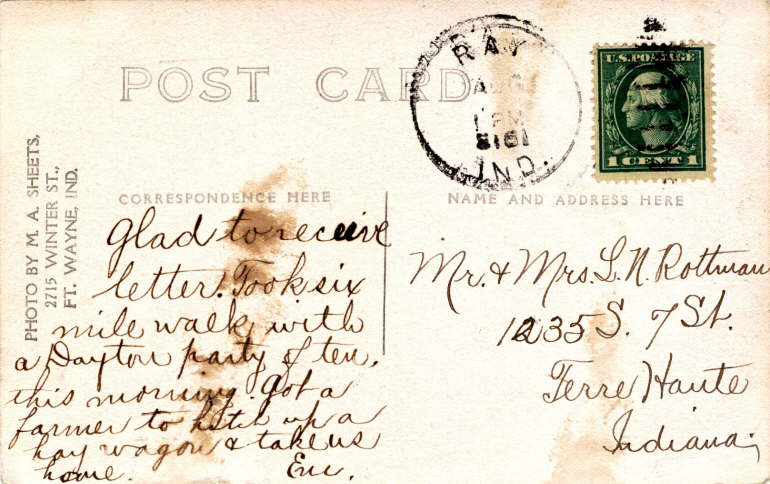 POST CARD
RAY
AUG
1 PM
IND.
U.S. POSTAGE
1 CENT 1
PHOTO BY M. A. SHEETS,
2715 WINTER ST.,
FT. WAYNE, IND.
CORRESPONDENCE HERE
NAME AND ADDRESS HERE
Glad to receive
letter! Took six
mile walk with
a Dayton party of ten,
this morning. Got a
farmer to hitch up a
hay wagon & take us
home.
Mr. & Mrs. L. N. Rottman
1235 S. 7 St.
Terre Haute
Indiana;